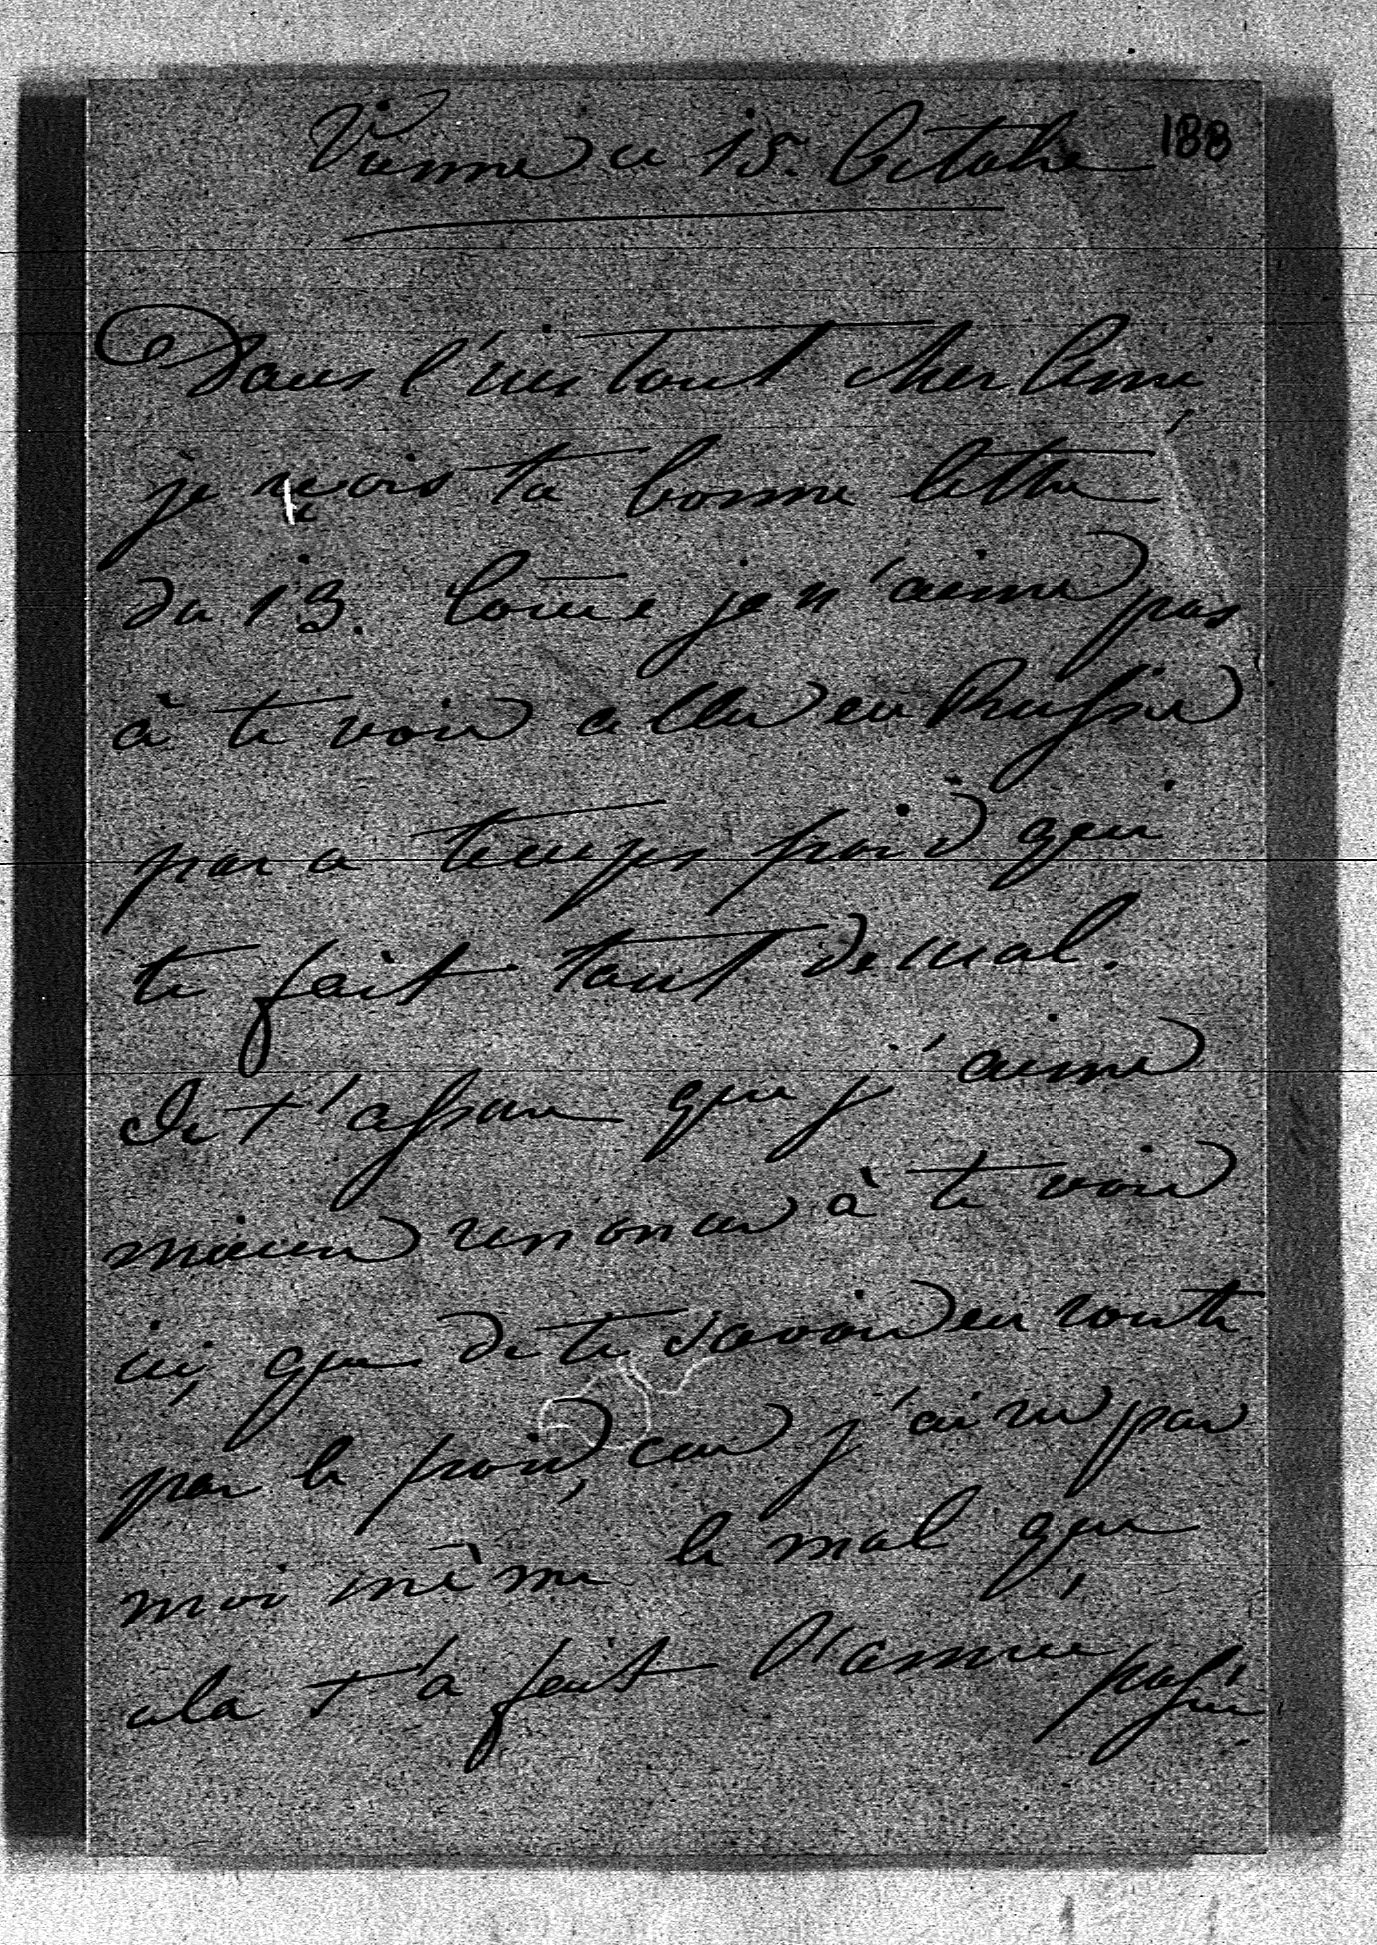 Vienne ce 15. Octobre 188
Dans l'instant cher Ami,
je reçois ta bonne lettre
du 13. Louis je n'aime pas
à te voir aller en Russie
par ce temps froid qui
te fait tant de mal.
Je t'assure que j'aime
mieux renoncer à te voir
ici, que de te savoir en route
par le froid, car j'ai vu par
moi même le mal que
cela t'a fait l'année passée.